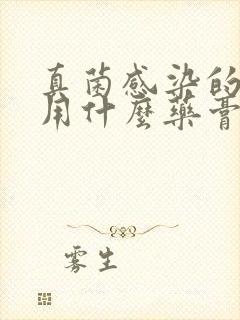 真菌感染的
用什麼藥膏
雾生